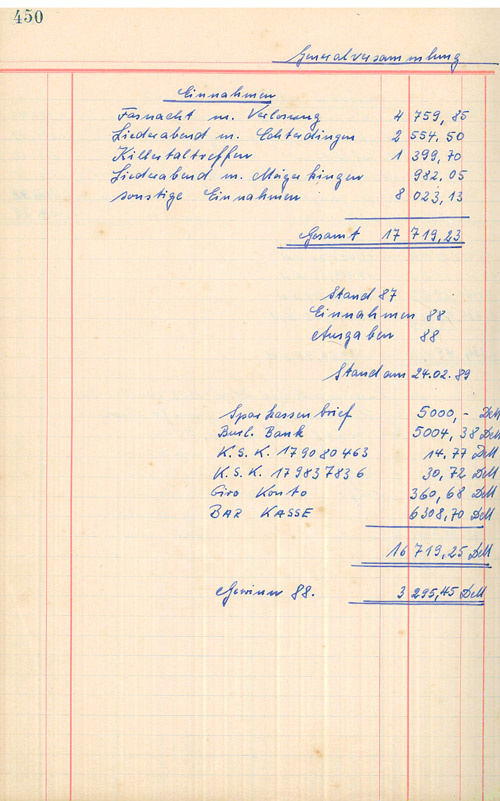 450
Generalversammlung
Einnahmen
Fasnacht m. Verlosung 4 759,85
Liederabend m. Echterdingen 2 554,50
Killertaltreffen 1 399,70
Liederabend m. Mägerkingen 982,05
sonstige Einnahmen 8 023,13
Gesamt 17 719,23
Stand 87
Einnahmen 88
Ausgaben 88
Stand am 24.02.89
Sparkassenbrief 5000,- DM
Burl. Bank 5004,38 DM
K.S.K. 179080463 14,77 DM
K.S.K. 179837836 30,72 DM
Giro Konto 360,68 DM
BAR KASSE 6308,70 DM
16 719,25 DM
Gewinn 88. 3 295,45 DM